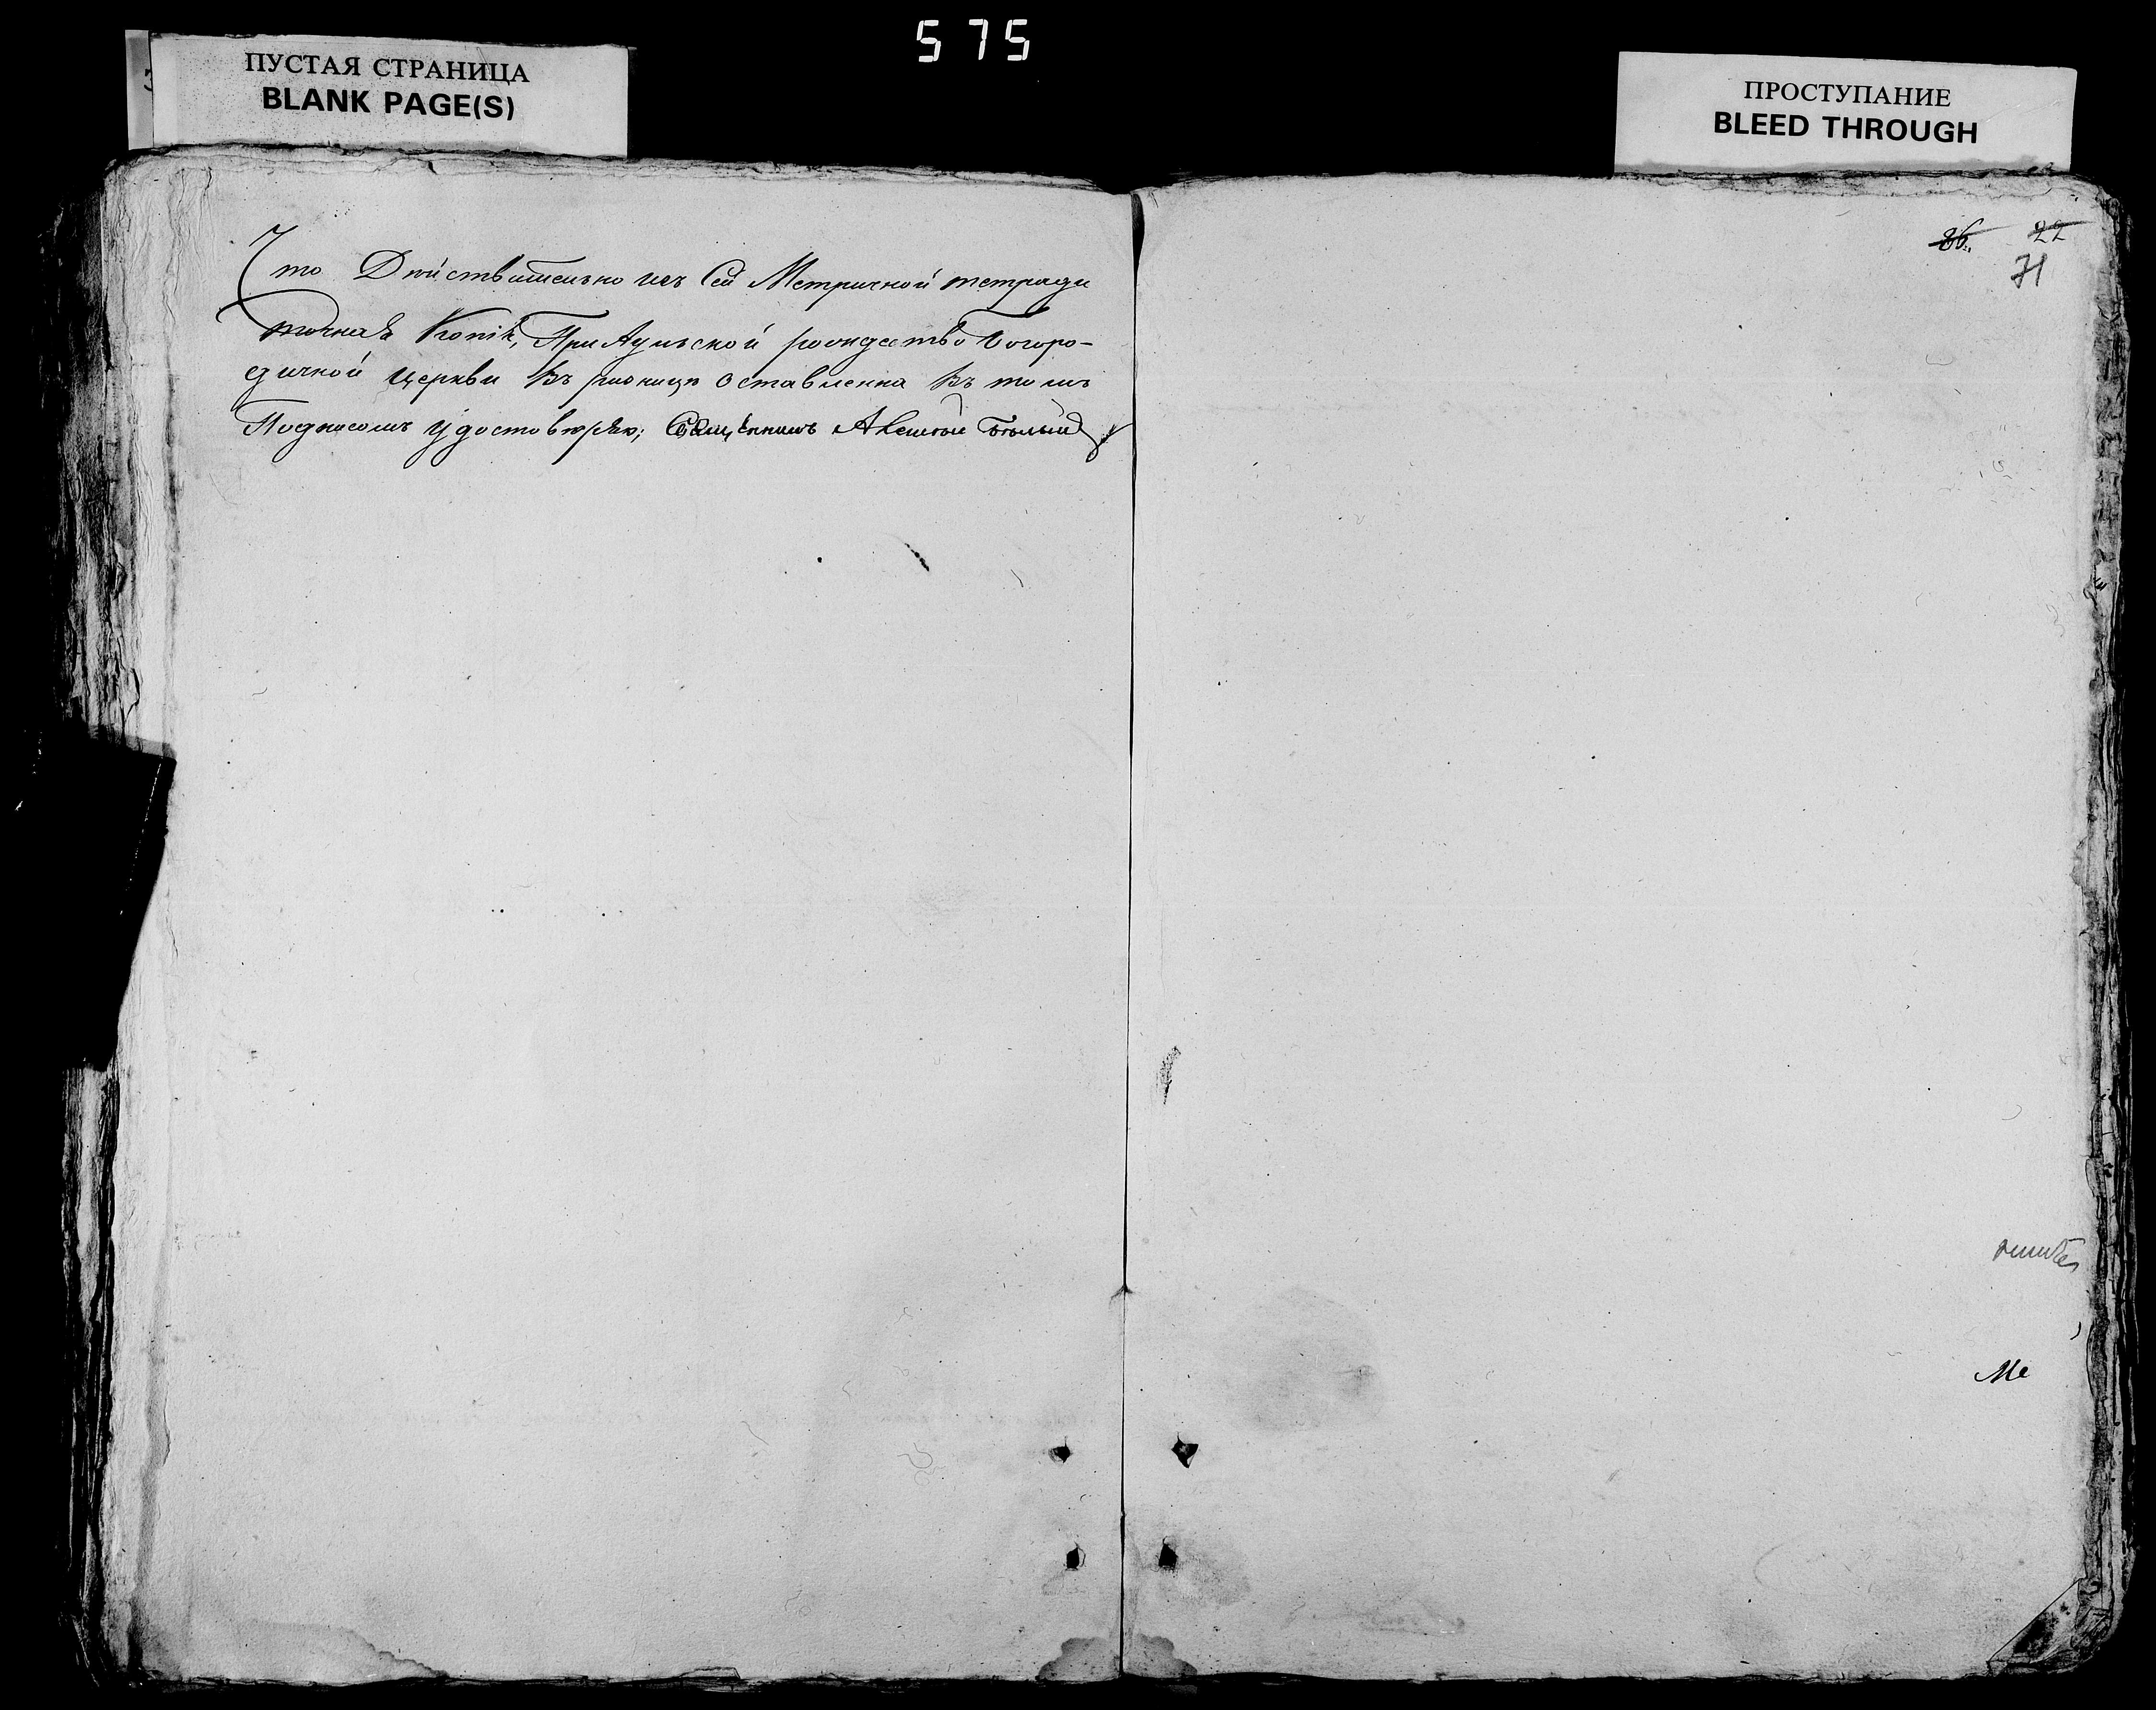 575
ПУСТАЯ СТРАНИЦА
BLANK PAGE(S)
ПРОСТУПАНИЕ
BLEED THROUGH
Что Дѣйствительно изъ Сей Метричной тетради
точная Копія, При Аульской рождество Богоро-
дичной церкви въ ризницѣ оставленна въ томъ
Подписомъ удостовѣряю; Священникъ Алексѣй Бѣлый
26. 22
71
Ме